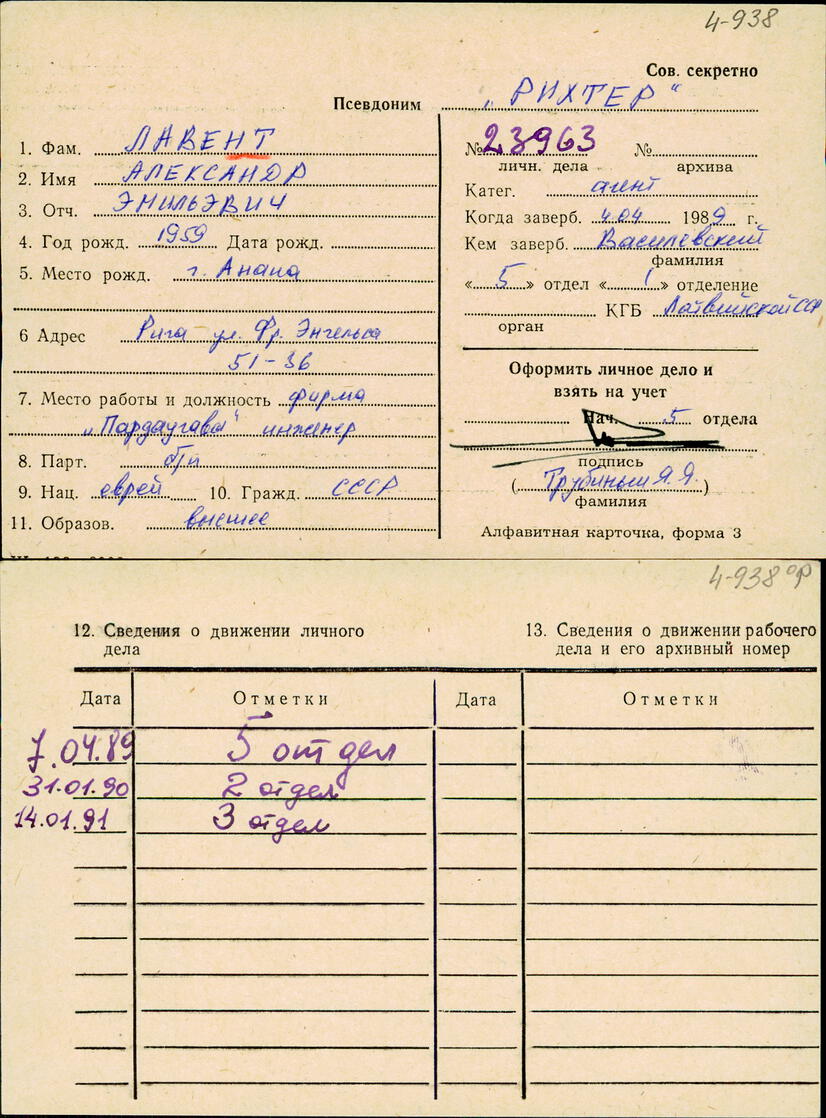 4-938
Сов. секретно
Псевдоним „РИХТЕР“
1. Фам. ЛАВЕНТ
2. Имя АЛЕКСАНДР
3. Отч. ЭМИЛЬЭВИЧ
4. Год рожд. 1959 Дата рожд.
5. Место рожд. г. Анапа
6 Адрес Рига ул. Фр. Энгельса
51-36
7. Место работы и должность фирма
„Пардаугава“ инженер
8. Парт. б/п
9. Нац. еврей 10. Гражд. СССР
11. Образов. высшее
№ 23963 №
личн. дела архива
Катег. агент
Когда заверб. 4.04 1989 г.
Кем заверб. Василевский
фамилия
« 5 » отдел « 1 » отделение
КГБ Латвийской ССР
орган
Оформить личное дело и
взять на учет
Нач. 5 отдела
подпись
(Трубиньш Я.Я.)
фамилия
Алфавитная карточка, форма 3
4-938 ор
12. Сведения о движении личного
дела
13. Сведения о движении рабочего
дела и его архивный номер
Дата Отметки Дата Отметки
7.04.89 5 отдел
31.01.90 2 отдел
14.01.91 3 отдел